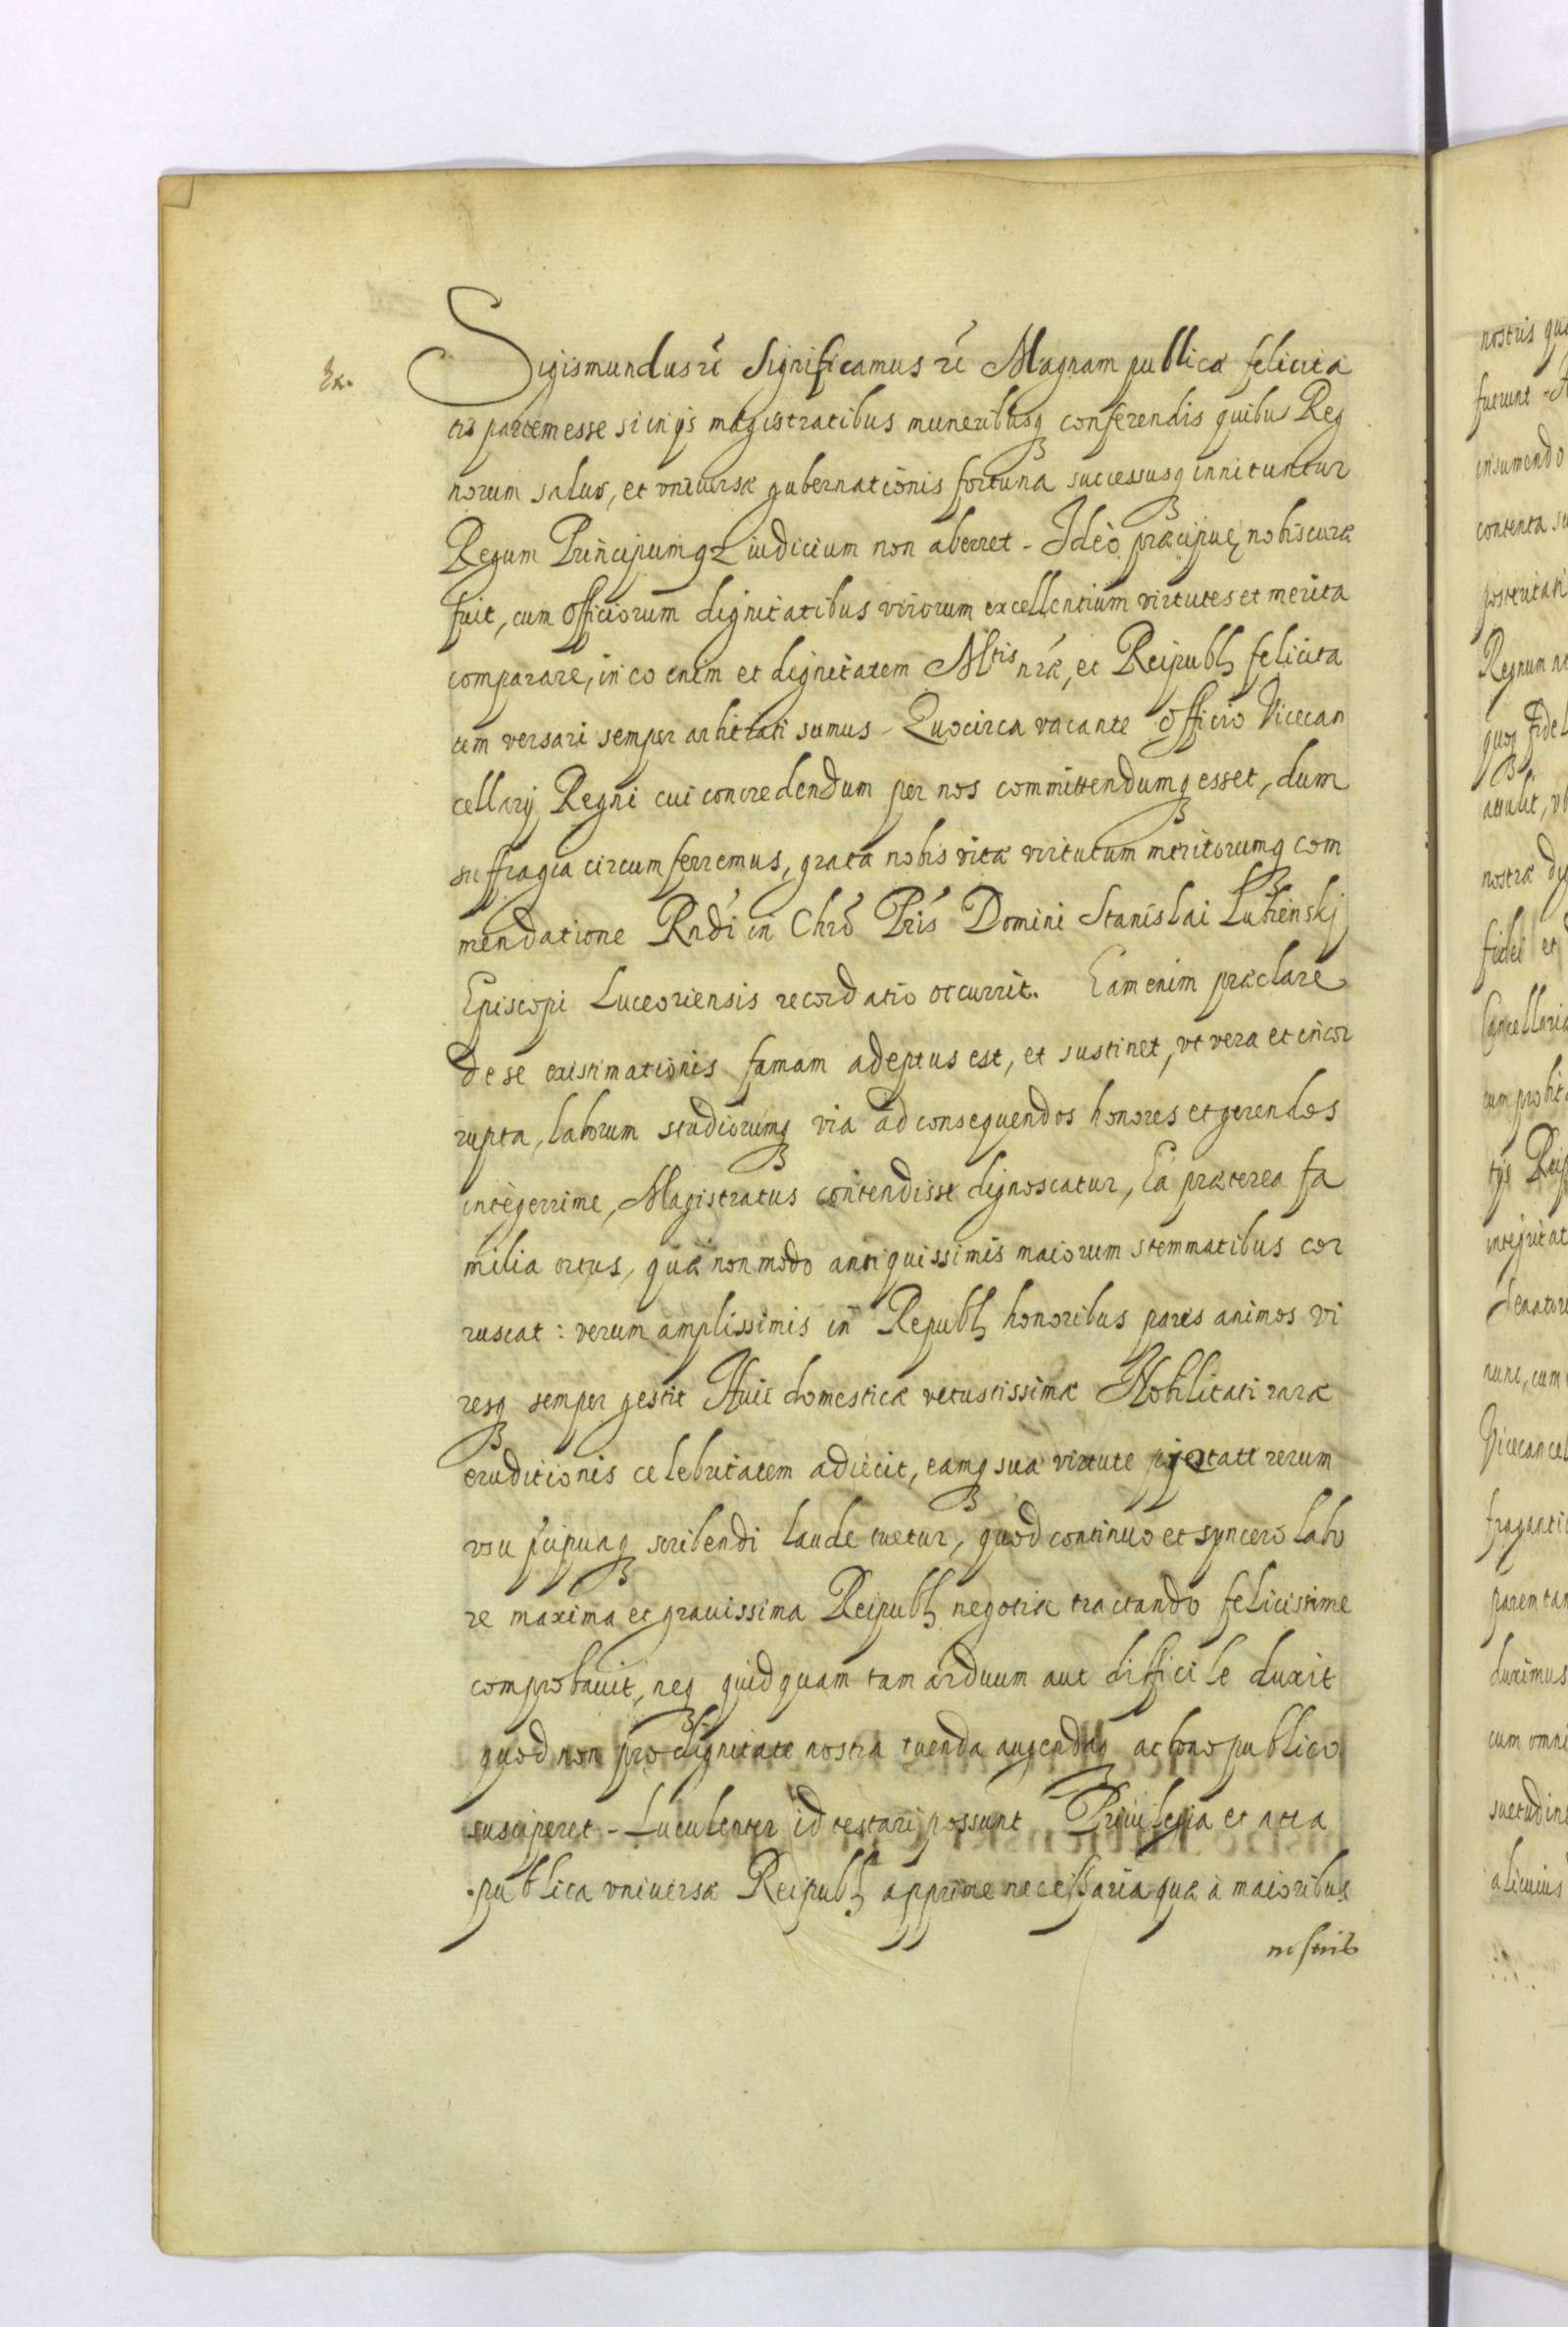 Ex.
Sigismundus rẽ Significamus rẽ Magnam publicæ felicita
tis partem esse si in ijs magistratibus muneribusq̃ conferendis quibus Reg
norum salus, et vniuersæ gubernationis fortuna successusq̃ innituntur
Regum Principumqꝫ iudicium non aberret - Ideò præcipuę nobis curæ
fuit, cum Officiorum dignitatibus virorum excellentium virtutes et merita
comparare, in eo enim et dignitatem Mtis nræ, et Reipubl: felicita
tem versari semper arbitrati sumus - Quocirca vacante Officio Vicecan
cellarij Regni cui concredendum per nos committendumq̃ esset, dum
suffragia circumferremus, grata nobis vitæ virtutum meritorumq̃ com
mendatione Rndi in Chrõ Pris Domini Stanislai Lubienskj
Episcopi Luceoriensis recordatio occurrit. Eam enim præclare
de se existimationis famam adeptus est, et sustinet, vt vera et incor
rupta, laborum studiorumq̃ via ad consequendos honores et gerendos
integerrime, Magistratus contendisse dignoscatur, Ea præterea fa
milia ortus, quæ non modo antiquissimis maiorum stemmatibus cor
ruscat: verum amplissimis in Republ: honoribus pares animos vi
resq̃ semper gestit Huic domesticæ vetustissimæ Nobilitati raræ
eruditionis celebritatem adiecit, eamq̃ sua virtute pietate rerum
vsu p̃cipuaq̃ scribendi laude tuetur, quod continuo et syncero labo
re maxima et grauissima Reipubl: negotia tractando felicissime
comprobauit, neq̃ quidquam tam arduum aut difficile duxit
quod non pro dignitate nostra tuenda augendaq̃ ac bono publico
susciperet - Luculenter id testari possunt Priuilegia et acta
publica vniuersæ Reipubl: apprime necessaria quæ à maioribus
nostris
nostris
fuerunt
insumendo
contenta
posteritati
Regnum
attulit,
nostræ
fidei et
Cancellaria
tum
denatoru
nunc, cum
Vicecancel
fraganti
parem tam
duximus
cum omni
alicuius